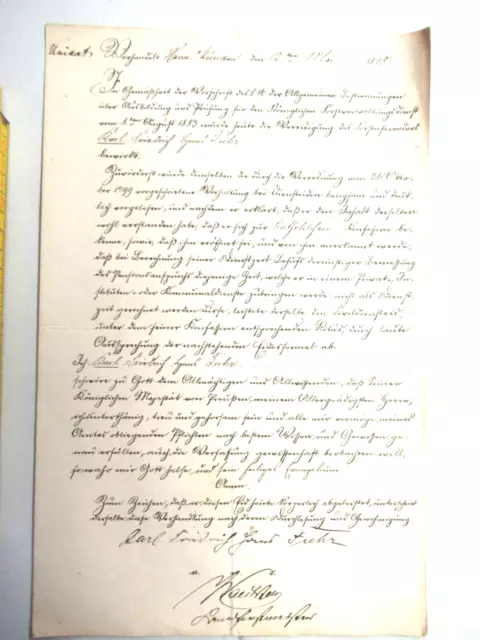 Verhandelt Hann. Münden, den 12ten
In Gemäßheit der Vorschrift des § der Allgemeinen Bestimmungen
über Ausbildung und Prüfung für den Königlichen Forstverwaltungsdienst
vom 1ten August 1883 wurde heute die Vereidigung des
Karl Friedrich Hans Fuhr
bewirkt.
Zuvörderst wurde demselben die durch die Verordnung vom 26. Okto-
ber 1799 vorgeschriebene Verhaltung bei Diensteiden langsam und deut-
lich vorgelesen, und nachdem er erklärt, daß er den Inhalt derselben
wohl verstanden habe, daß er sich zur Konfession be-
kenne, sowie, daß ihm eröffnet sei, und von ihm anerkannt werde,
daß bei Berechnung seiner Dienstzeit Behufs dereinstiger Bemessung
des Pensionsanspruchs diejenige Zeit, welche er in einem Privat-, In-
stituten- oder Kommunaldienste zubringen werde, nicht als Dienst-
zeit gerechnet werden dürfe, leistete derselbe den
unter den seiner Konfession entsprechenden Ritus, durch laute
Aussprechung der nachstehenden Eidesformel ab:
Ich, Karl Friedrich Hans Fuhr
schwöre zu Gott dem Allmächtigen und Allwissenden, daß Seiner
Königlichen Majestät von Preußen, meinem Allergnädigsten Herrn,
ich unterthänig, treu und gehorsam sein und alle mir vermöge meines
Amtes obliegenden Pflichten nach bestem Wissen und Gewissen ge-
nau erfüllen, auch die Verfassung gewissenhaft beobachten will,
so wahr mir Gott helfe, und sein heiliges Evangelium
Amen.
Zum Zeichen, daß er diesen Eid heute körperlich abgeleistet, unterschreibt
derselbe diese Verhandlung nach deren Durchlesung und Genehmigung
Karl Friedrich Hans Fuhr
Landforstmeister